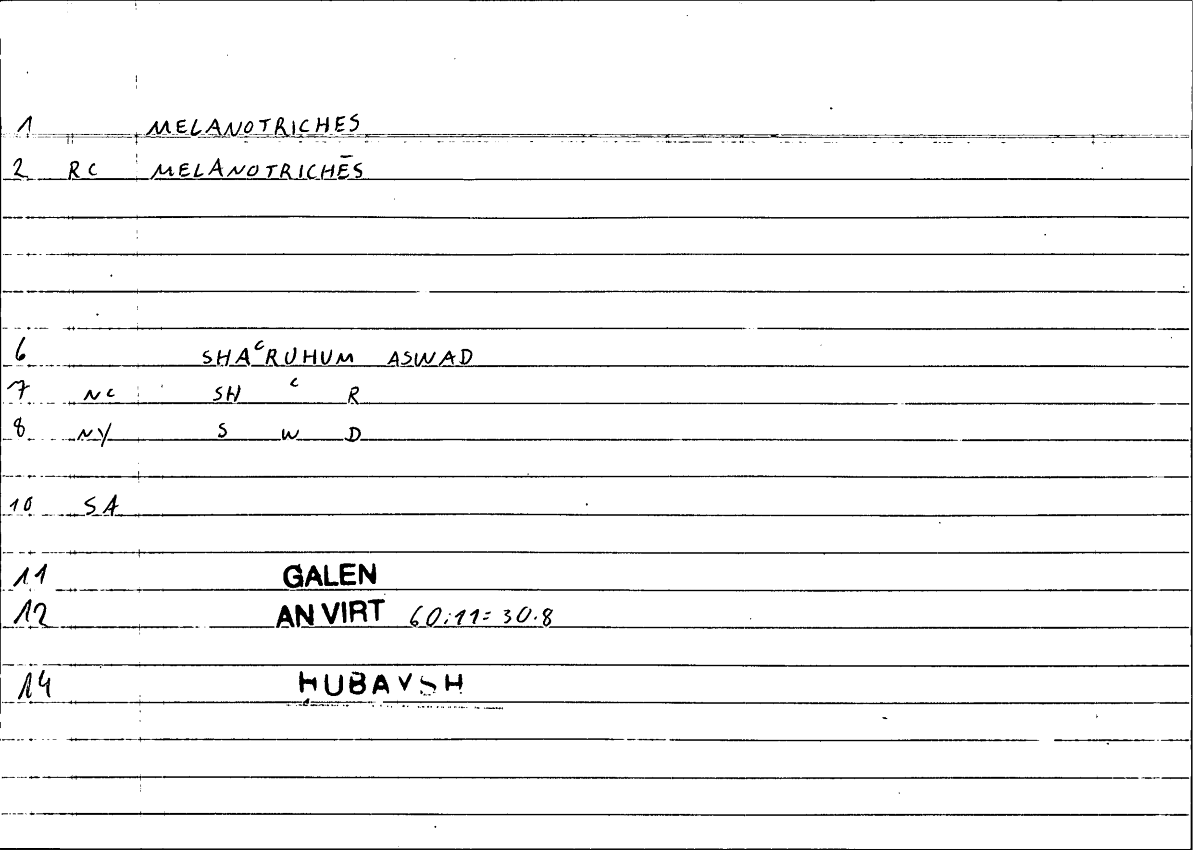 1 MELANOTRICHES
2 RC MELANOTRICHĒS
6 SHAᶜRUHUM ASWAD
7 NC SH ᶜ R
8 NY S W D
10 SA
11 GALEN
12 AN VIRT 60:11=30.8
14 ḤUBAYSH